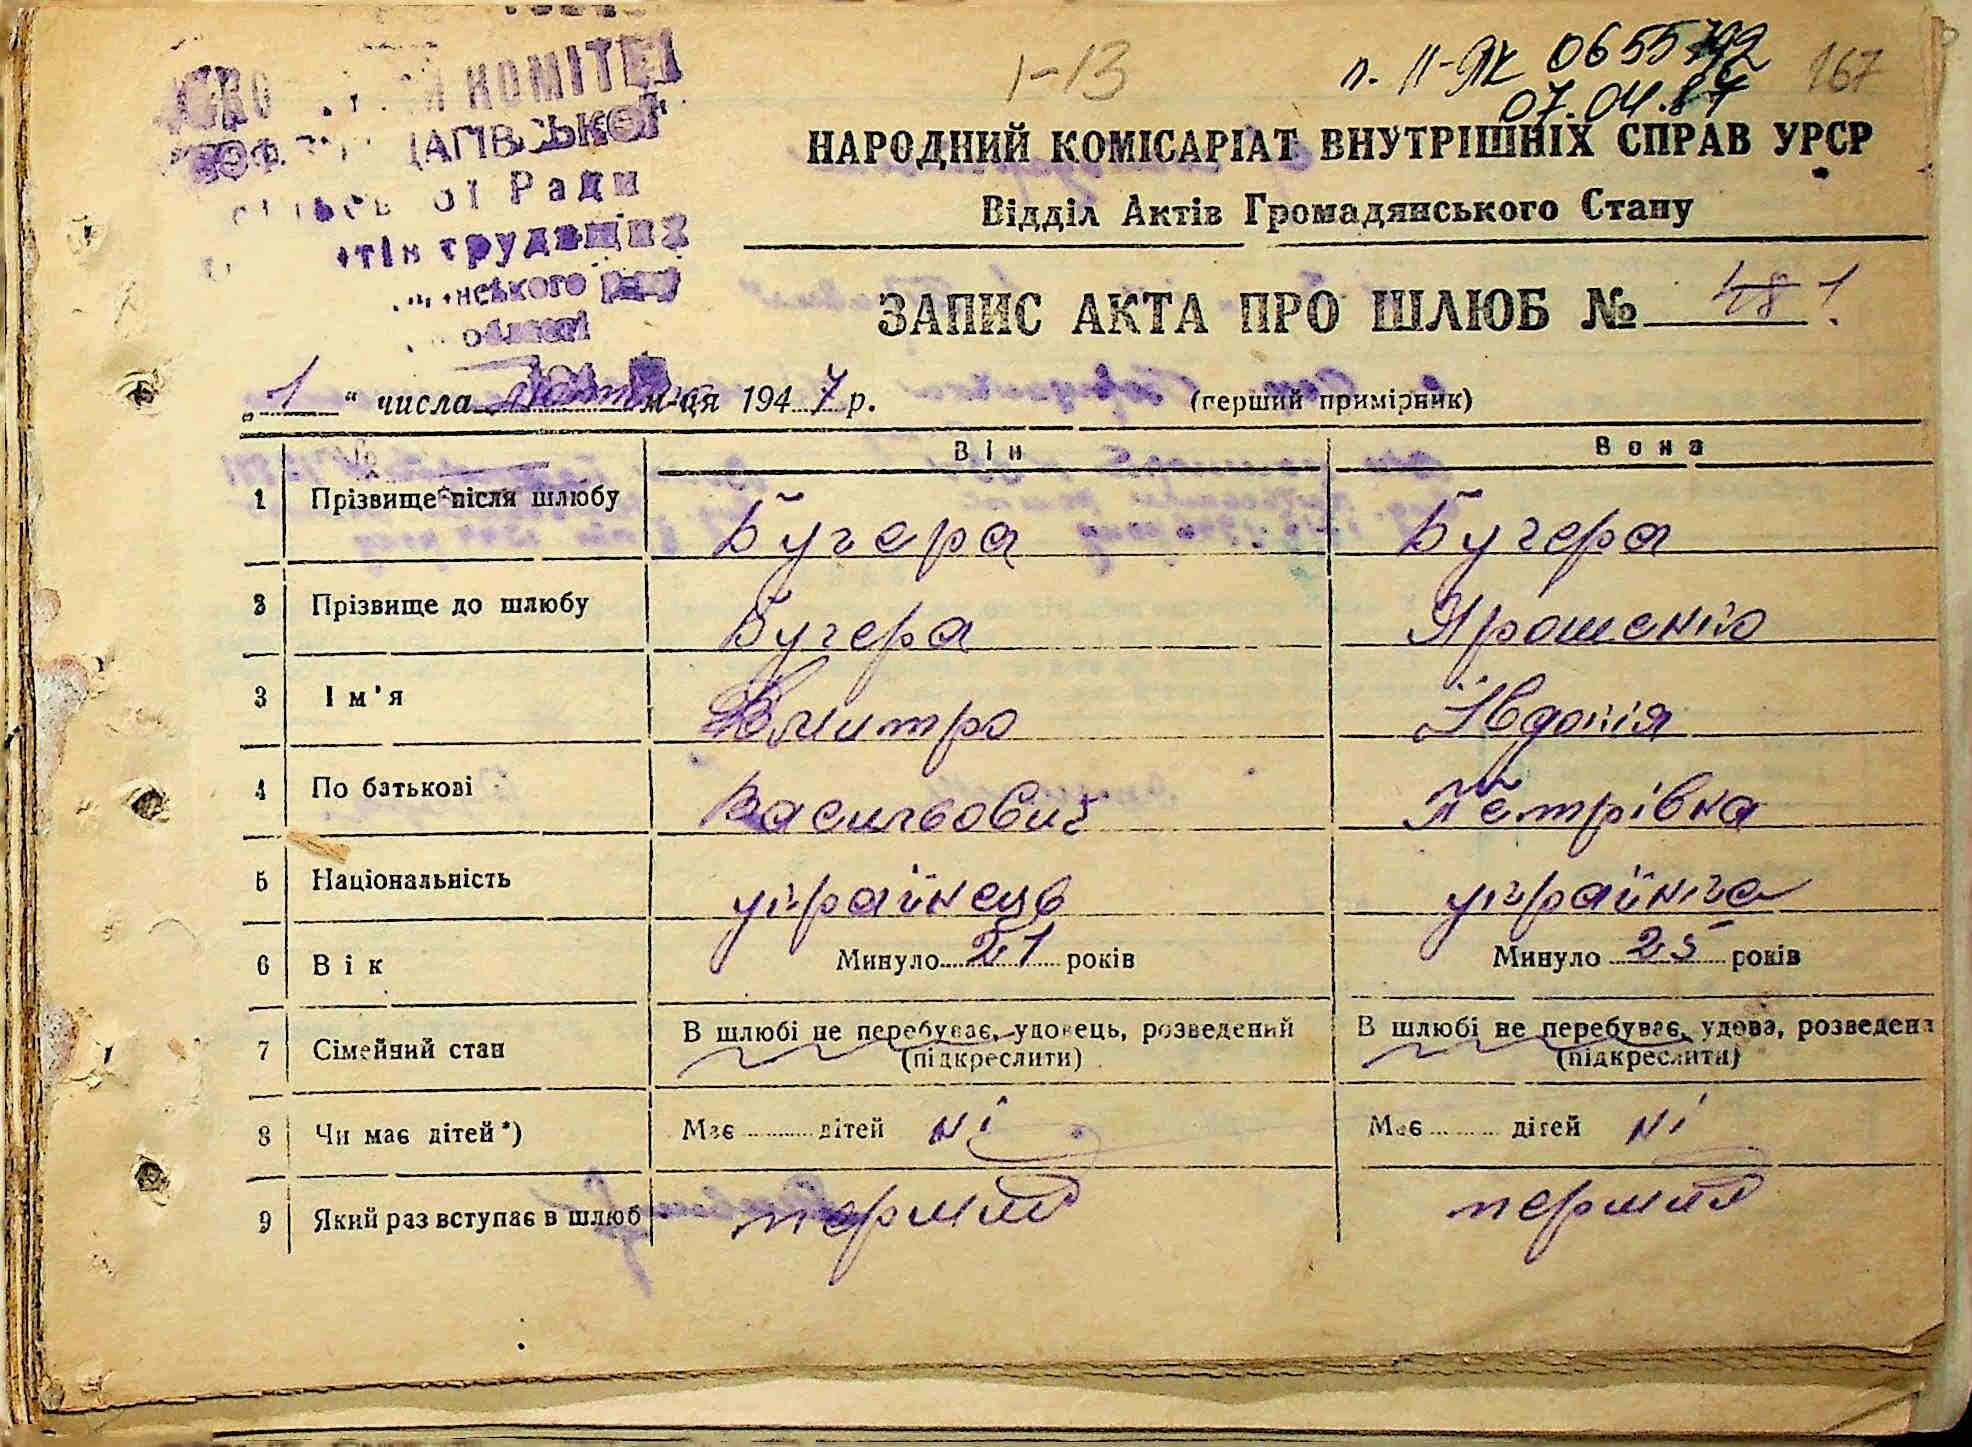 КОМІТЕТ
Ради
трудящих
області
1-13
п. II-ЯК 0655792
07.04.87
167
НАРОДНИЙ КОМІСАРІАТ ВНУТРІШНІХ СПРАВ УРСР
Відділ Актів Громадянського Стану
ЗАПИС АКТА ПРО ШЛЮБ № 48 1
„ 1 “ числа лютого м-ця 1947 р. (перший примірник)
Він Вона
1 Прізвище після шлюбу Бучера Бучера
2 Прізвище до шлюбу Бучера Ярошенко
3 Ім'я Дмитро Івдокія
4 По батькові Васильович Петрівна
5 Національність українець українка
6 Вік Минуло 21 років Минуло 25 років
7 Сімейний стан В шлюбі не перебуває, удовець, розведений (підкреслити) В шлюбі не перебуває, удова, розведена (підкреслити)
8 Чи має дітей*) Має дітей ні Має дітей ні
9 Який раз вступає в шлюб перший перший